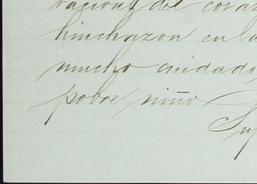 racion del coraz
hinchazon en la
mucho cuidado
pobre niño
Su